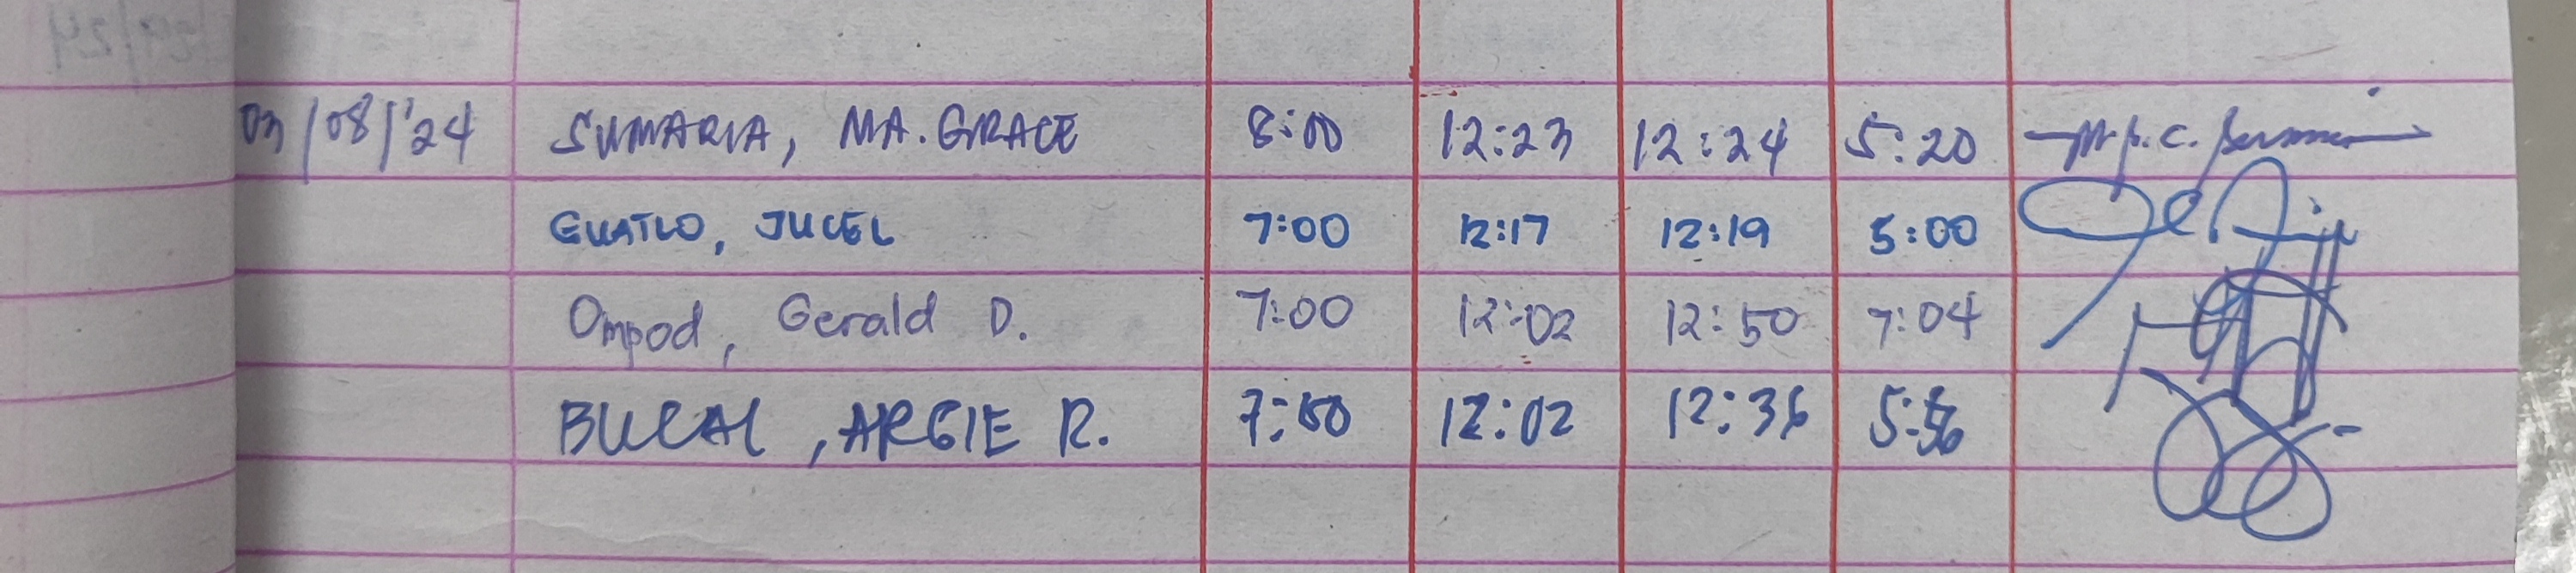 03/08/'24 SUMARIA, MA. GRACE 8:00 12:23 12:24 5:20
GUATLO, JUCEL 7:00 12:17 12:19 5:00
Ompod, Gerald D. 7:00 12:02 12:50 7:04
BUCAL, ARGIE R. 7:50 12:02 12:36 5:56